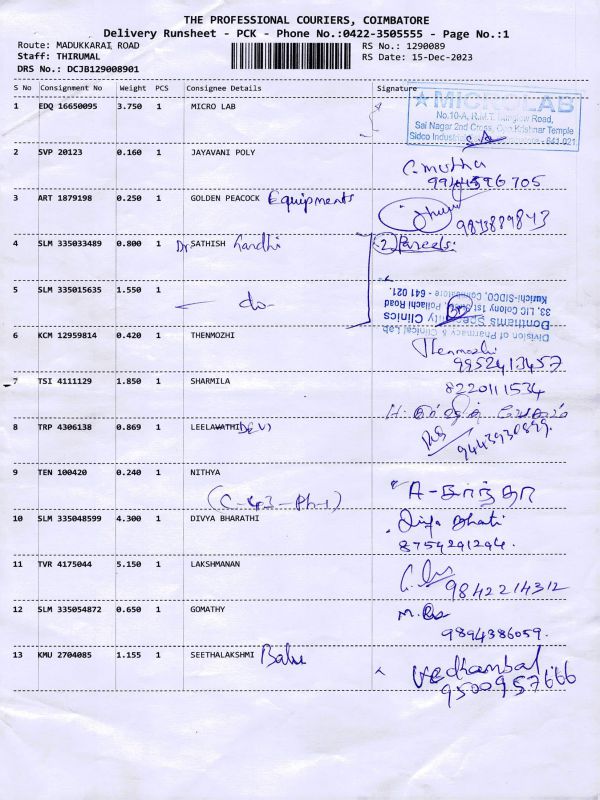 THE PROFESSIONAL COURIERS, COIMBATORE
Delivery Runsheet - PCK - Phone No.:0422-3505555 - Page No.:1
Route: MADUKKARAI ROAD
RS No.: 1290089
Staff: THIRUMAL
RS Date: 15-Dec-2023
DRS No.: DCJB129008901
S No Consignment No Weight PCS Consignee Details Signature
1 EDQ 16650095 3.750 1 MICRO LAB
★ MICRO LAB
No.10-A, R.M.T. Bunglow Road,
Sai Nagar 2nd Cross, Opp.Krishnar Temple
Sidco Industrial - 641 021
2 SVP 20123 0.160 1 JAYAVANI POLY
C. muthu
3 ART 1879198 0.250 1 GOLDEN PEACOCK Equipments
9843889843
4 SLM 335033489 0.800 1 Dr SATHISH Gandhi
2 Parcels.
5 SLM 335015635 1.550 1
- do-
Division of Pharmacy & Clinical Lab
Donthams Speciality Clinics
33, LIC Colony 1st Street, Pollachi Road
Kurichi-SIDCO, Coimbatore - 641 021.
6 KCM 12959814 0.420 1 THENMOZHI
Thenmozhi
9952413457
7 TSI 4111129 1.850 1 SHARMILA
8220111534
8 TRP 4306138 0.869 1 LEELAWATHI DEVI
9443930899.
9 TEN 100420 0.240 1 NITHYA
(C-43-Ph-1)
10 SLM 335048599 4.300 1 DIVYA BHARATHI
Divya Bhati
8754291294.
11 TVR 4175044 5.150 1 LAKSHMANAN
9842214312
12 SLM 335054872 0.650 1 GOMATHY
9894386059.
13 KMU 2704085 1.155 1 SEETHALAKSHMI Babu
Vedhambal
9500957666